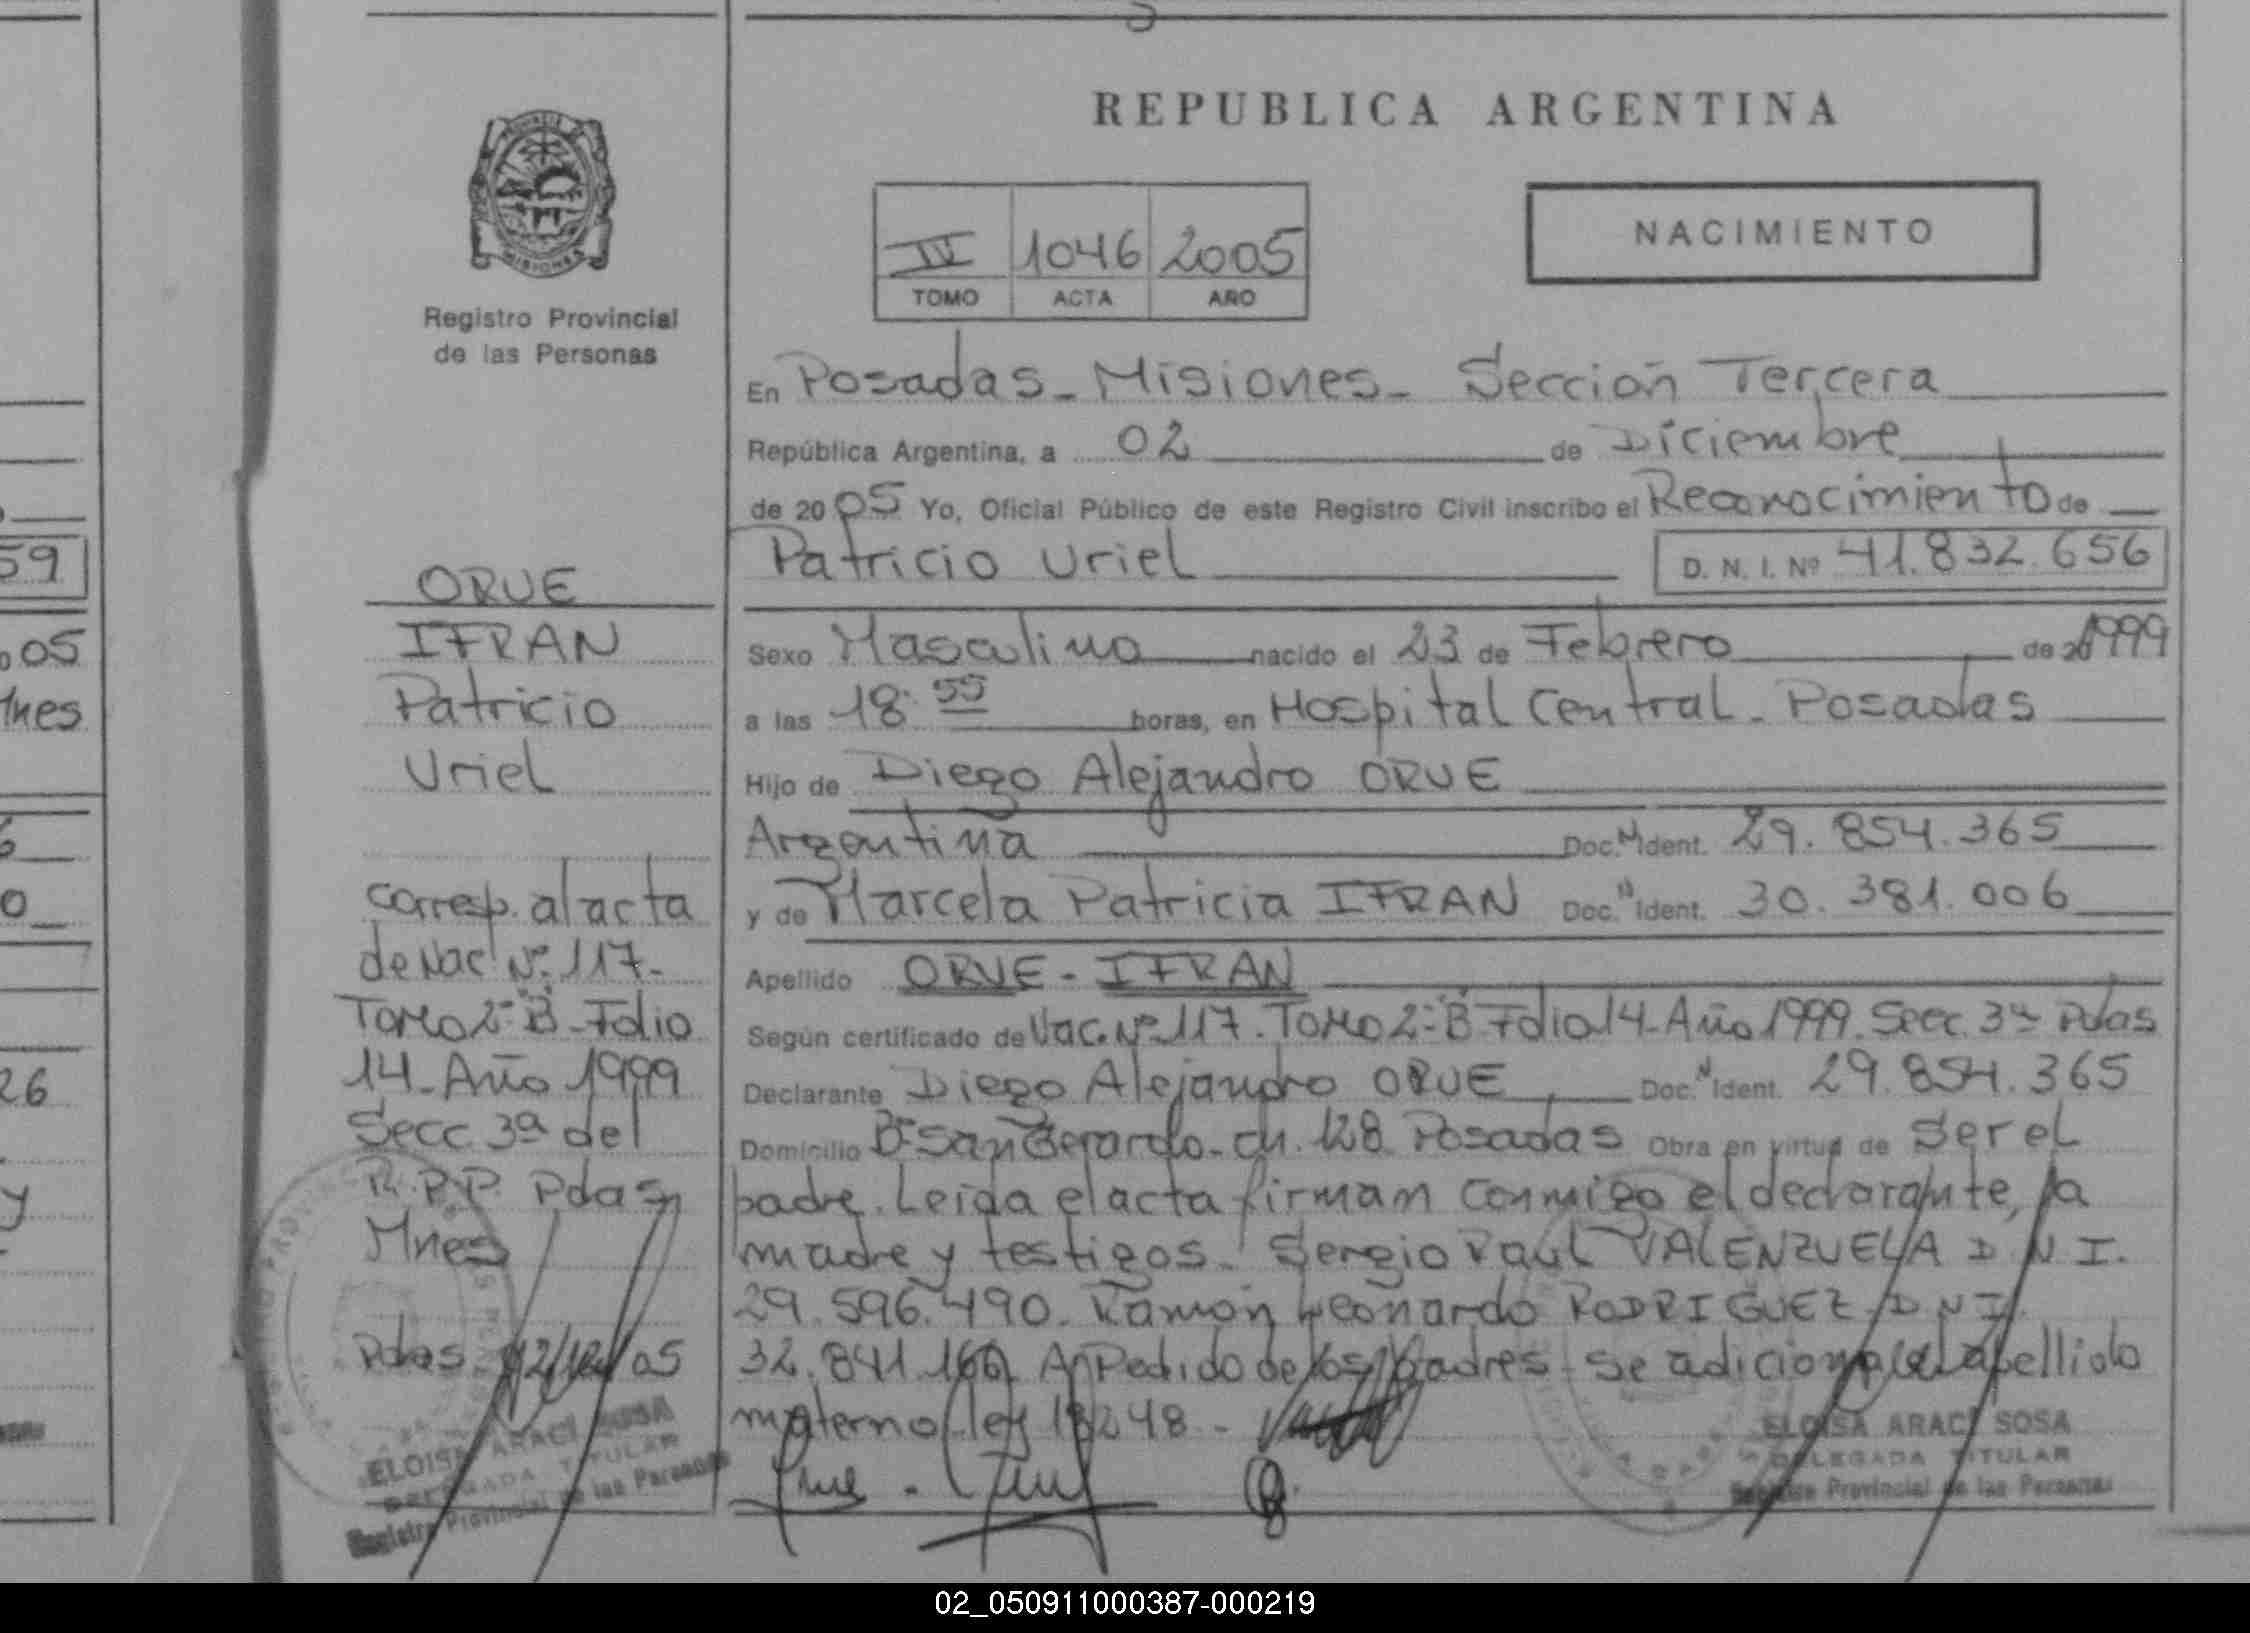 REPUBLICA ARGENTINA
PROVINCIA DE
MISIONES
Registro Provincial
de las Personas
IV 1046 2005
TOMO ACTA AÑO
NACIMIENTO
En Posadas - Misiones - Sección Tercera
República Argentina, a 02 de Diciembre
de 2005 Yo, Oficial Público de este Registro Civil inscribo el Reconocimiento de
Patricio Uriel D. N. I. Nº 41.832.656
Sexo Masculino nacido el 23 de Febrero de 1999
a las 18:55 horas, en Hospital Central - Posadas
Hijo de Diego Alejandro ORUE
Argentina Doc. Ident. 29.854.365
y de Marcela Patricia IFRAN Doc. Ident. 30.381.006
Apellido ORUE - IFRAN
Según certificado de Nac. Nº 117. Tomo 2º B Folio 14 - Año 1999. Secc. 3ª Pdas
Declarante Diego Alejandro ORUE Doc. Ident. 29.854.365
Domicilio Bº San Gerardo - ch. 128 Posadas Obra en virtud de Ser el
padre. Leída el acta firman conmigo el declarante, la
madre y testigos. Sergio Raúl VALENZUELA D N I.
29.596.490. Ramón Leonardo RODRIGUEZ. D N I.
32.841.166. A Pedido de los padres se adiciona el apellido
materno ley 18248 -
ELOISA ARACI SOSA
DELEGADA TITULAR
Registro Provincial de las Personas
ORUE
IFRAN
Patricio
Uriel
corresp. al acta
de Nac Nº 117 -
Tomo 2º B - Folio
14 - Año 1999
Secc. 3ª del
R.P.P. Pdas
Mnes
Pdas 12/12/05
ELOISA ARACI SOSA
DELEGADA TITULAR
Registro Provincial de las Personas
59
05
Mnes
26
y
02_050911000387-000219